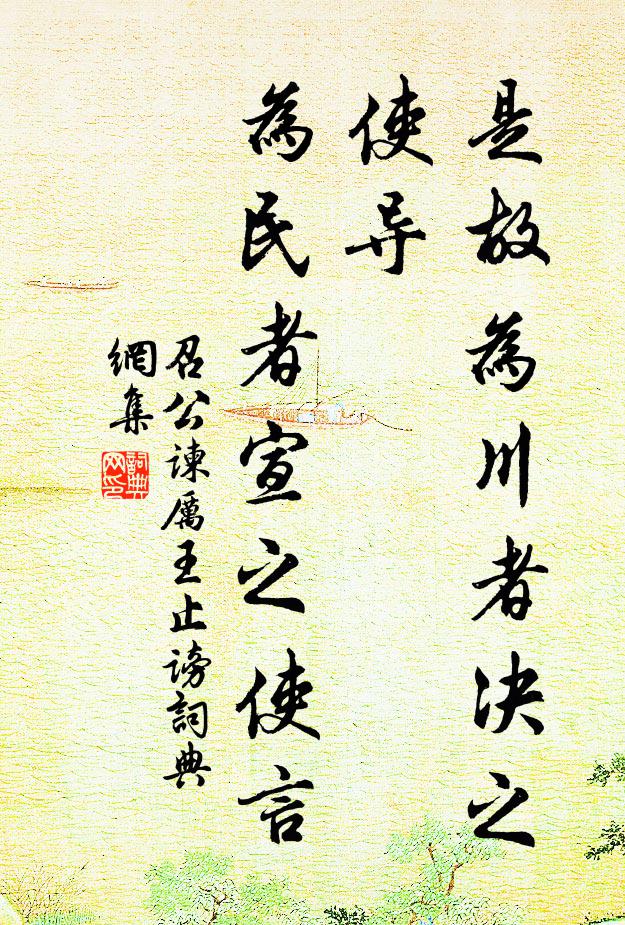 是故為川者决之
使导
為民者宣之使言
召公諫厲王止謗詞典
網集
詞典網印